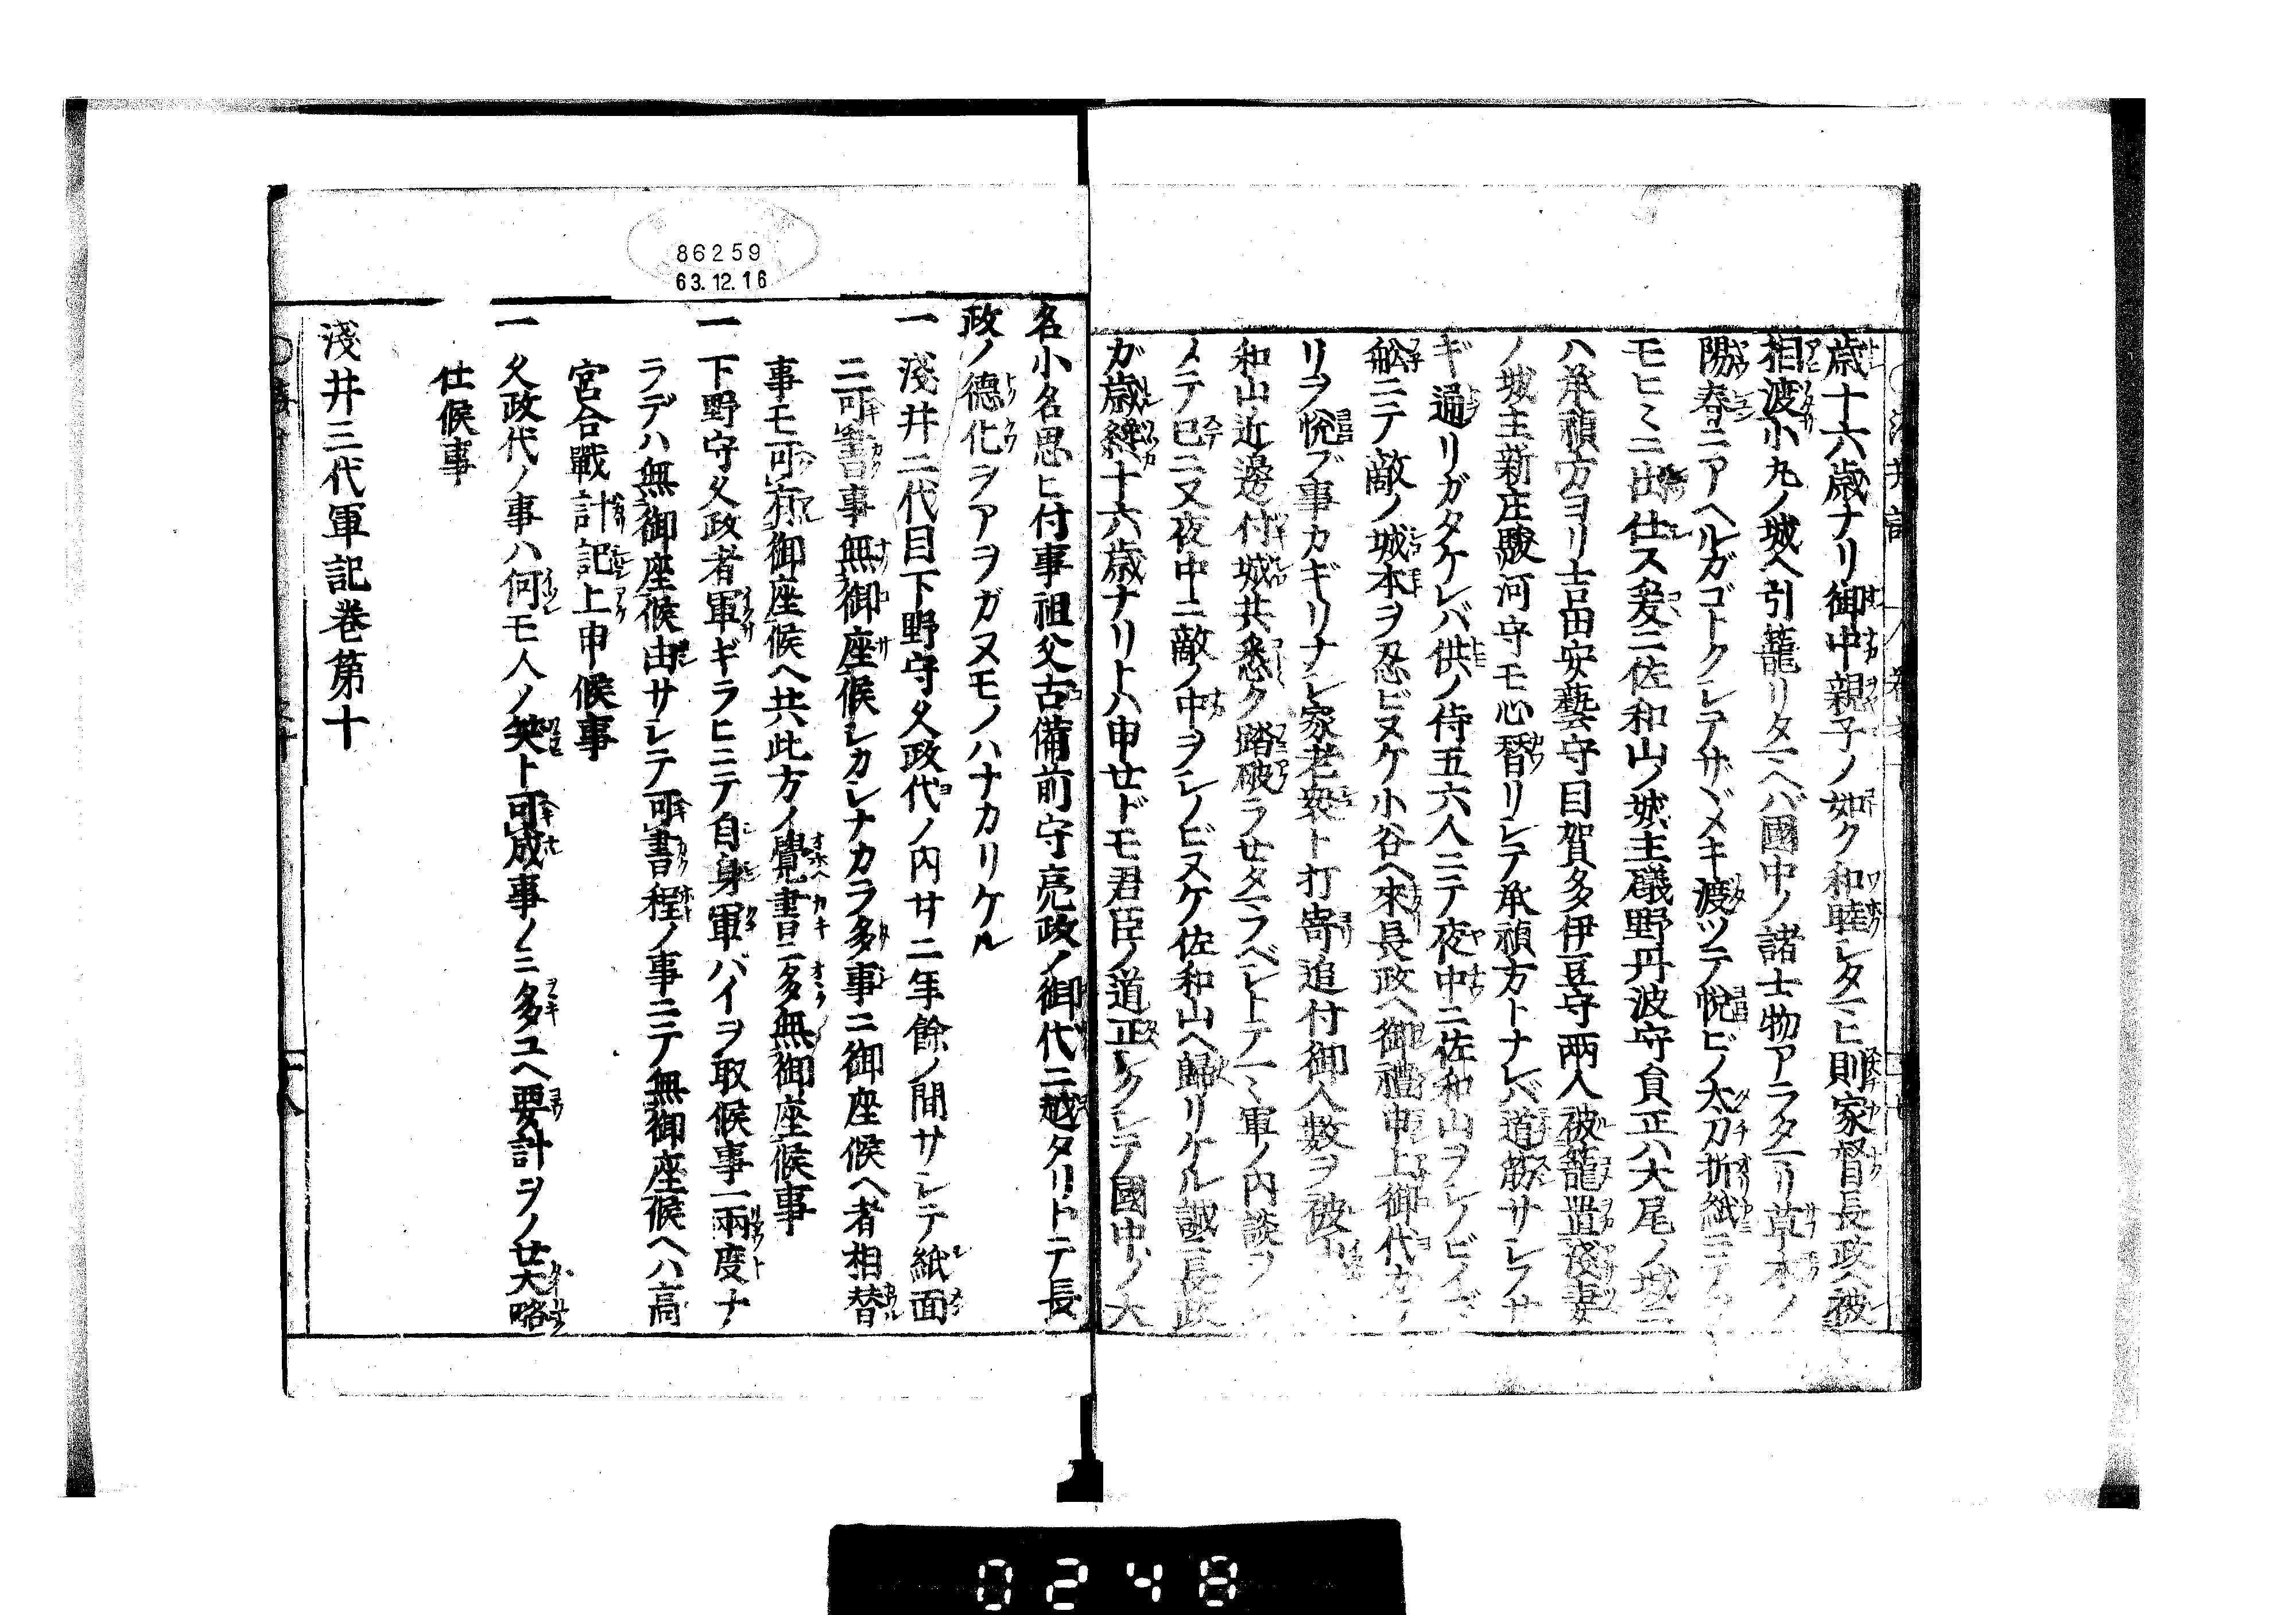 歳十六歳ナリ御中親子ノ如ク和睦シタマヒ則家督長政ヘ被
相渡小丸ノ城ヘ引籠リタマヘバ國中ノ諸士物アラタマリ草木ノ
陽春ニアヘルガゴトクシテサヾメキ渡ツテ悦ビノ太刀折紙ニテ
モヒミニ出仕ス爰ニ佐和山ノ城主礒野丹波守員正八大尾ノ城ニ
ハ承禎方ヨリ吉田安藝守目賀多伊豆守兩人被籠置淺妻
ノ城主新庄駿河守モ心替リシテ承禎方トナレバ道筋サシフサ
ギ通リガタケレバ供ノ侍五六人ニテ夜中ニ佐和山ヲシノビイデ
舩ニテ敵ノ城本ヲ忍ビヌケ小谷ヘ來長政ヘ御禮申上御代カハ
リヲ悦ブ事カギリナシ家老衆ト打寄追付御人数ヲ被
和山近邊付城共悉ク踏破ラせタマフベシトテ一ミ軍ノ内談ヲ
メテ巳ニ又夜中ニ敵ノ中ヲシノビヌケ佐和山ヘ歸リケル誠ニ長政
ガ歳纔十六歳ナリトハ申せドモ君臣ノ道正シクシテ國中ノ大
名小名思ヒ付事祖父古備前守亮政ノ御代ニ越タリトテ長
政ノ德化ヲアヲガヌモノハナカリケル
一 淺井二代目下野守久政代ノ内廿二年餘ノ間サシテ紙面
ニ可書事無御座候シカシナカラ多事ニ御座候ヘ者相替
事モ可有御座候ヘ共此方ノ覺書ニ多無御座候事
一 下野守久政者軍ギラヒニテ自身軍バイヲ取候事一兩度ナ
ラデハ無御座候由サシテ可書程ノ事ニテ無御座候ヘハ高
宮合戰計記上申候事
一 久政代ノ事ハ何モ人ノ笑ト可成事ノミ多ユヘ要計ヲノせ大略
仕候事
淺井三代軍記巻第十
十八
86259
63.12.16
0248